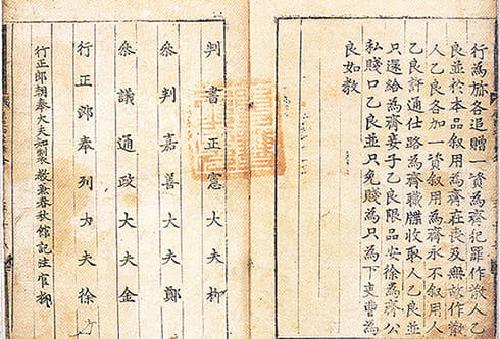 行為旀各追贈一資為齊犯罪作散人乙
良並於本品叙用為齊在喪及無故作散
人乙良各加一資叙用為齊永不叙用人
乙良許通仕路為齊職牒收取人乙良並
只還給為齊妾子乙良限品安徐為齊公
私賤口乙良並只免賤為只為下吏曹為
良如教
判書正憲大夫
叅判嘉善大夫鄭
叅議通政大夫金
行正郎奉列大夫徐
行正郎朝奉大夫知製 教兼春秋館記注官柳